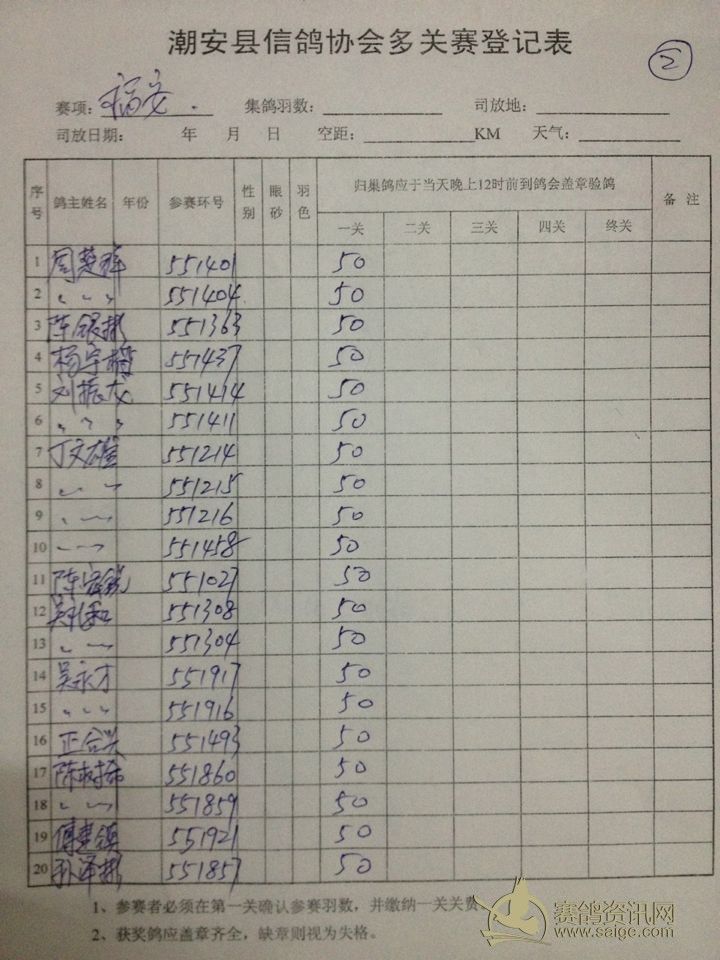 潮安县信鸽协会多关赛登记表
②
赛项：福安． 集鸽羽数： 司放地：
司放日期： 年 月 日 空距： KM 天气：
序号 鸽主姓名 年份 参赛环号 性别 眼砂 羽色 归巢鸽应于当天晚上12时前到鸽会盖章验鸽 备注
一关 二关 三关 四关 终关
1 周楚辉 551401 50
2 〃 〃 〃 551404 50
3 陈银彬 551363 50
4 杨宇 551437 50
5 刘振友 551414 50
6 〃 〃 〃 551411 50
7 丁文雄 551214 50
8 〃 〃 551215 50
9 〃 〃 551216 50
10 〃 〃 551458 50
11 陈 551027 50
12 吴 551308 50
13 〃 〃 551304 50
14 吴永才 551917 50
15 〃 〃 〃 551916 50
16 正合兴 551493 50
17 陈树希 551860 50
18 〃 〃 551859 50
19 傅建镇 551921 50
20 孙泽彬 551857 50
1、参赛者必须在第一关确认参赛羽数，并缴纳一关关费
2、获奖鸽应盖章齐全，缺章则视为失格。
赛鸽资讯网
www.saige.com